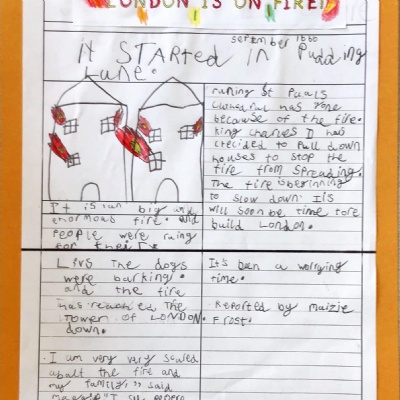 LONDON IS ON FIRE!
september 1666
it STARted IN Pudding
Lane.
It is run big and
enormous fire. and
PEOPLE were runing
for their
Livs The dogs
were barking.
and the fire
has reached The
TOWER OF LONDON.
down.
I am very vary scared
abalt the fire and
my family," said
runing St Puals
Cathedral has gone
because of the fire.
king charles II has
decided to pull down
houses to stop the
fire from spreading.
The fire is beginning
to slow down. It is
will soon be time to re
build London.
It's been a worrying
time.
Reported by maizie
Frost.